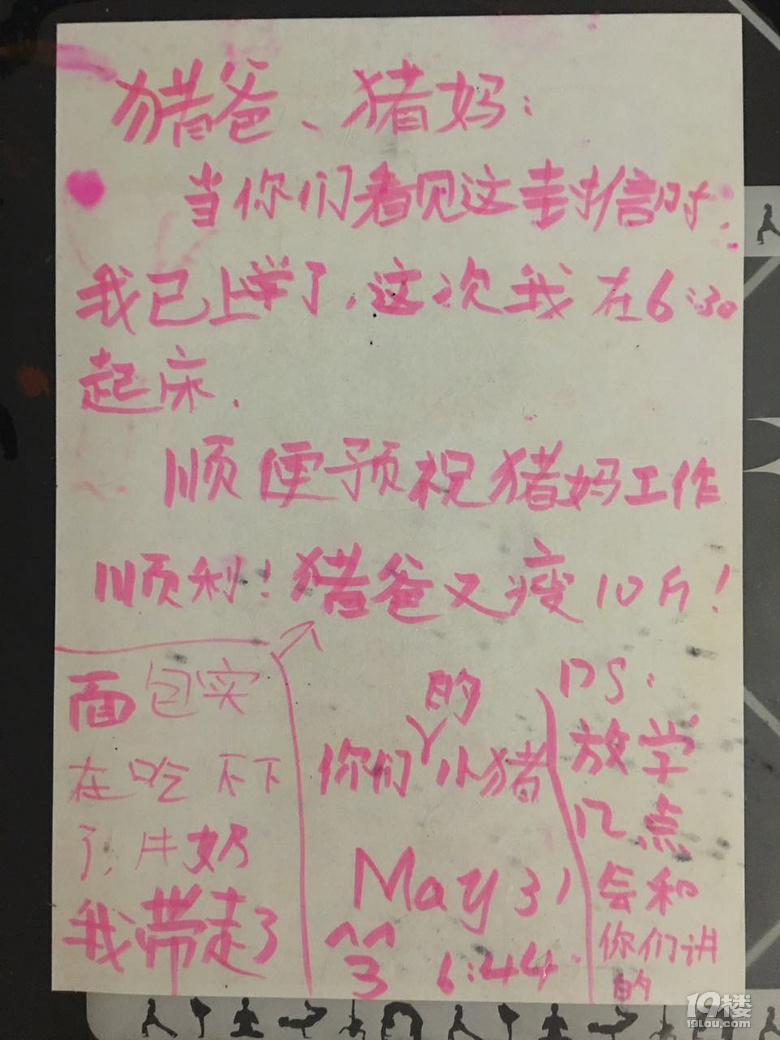 猪爸、猪妈:
当你们看见这封信时,
我已上学了,这次我在6:30
起床.
顺便预祝猪妈工作
顺利!猪爸又瘦10斤!
面包实
在吃不下
了,牛奶
我带走了
你们的小猪
May 31
^^
3
6:44.
PS:
放学
几点
会和
你们讲
的
19楼
19lou.com